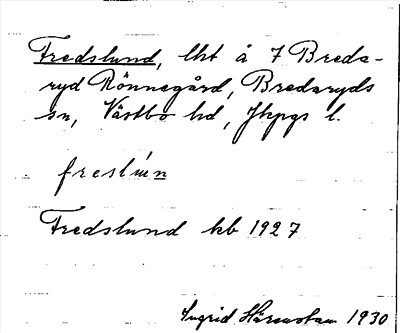 Fredslund, lht å 7 Breda-
ryd Rönnegård, Bredaryds
sn, Västbo hd, Jkpgs l.
freslún
Fredslund kb 1927
Ingrid 1930